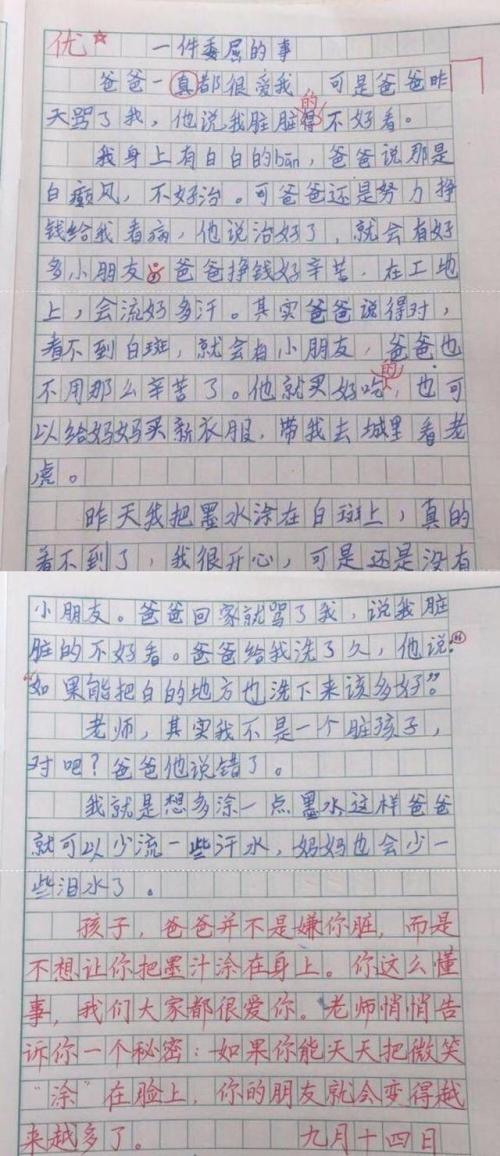 优
一件委屈的事
爸爸一真都很爱我,可是爸爸昨
天骂了我,他说我脏脏得不好看。
的
我身上有白白的bān,爸爸说那是
白癜风,不好治。可爸爸还是努力挣
钱给我看病,他说治好了,就会有好
多小朋友。爸爸挣钱好辛苦,在工地
上,会流好多汗。其实爸爸说得对,
看不到白斑,就会有小朋友,爸爸也
不用那么辛苦了。他就买好吃,也可
的
以给妈妈买新衣服,带我去城里看老
虎。
昨天我把墨水涂在白斑上,真的
看不到了,我很开心,可是还是没有
小朋友。爸爸回家就骂了我,说我脏
脏的不好看。爸爸给我洗了久,他说:
“如果能把白的地方也洗下来该多好。”
老师,其实我不是一个脏孩子,
对吧?爸爸他说错了。
我就是想多涂一点墨水这样爸爸
就可以少流一些汗水,妈妈也会少一
些泪水了。
孩子,爸爸并不是嫌你脏,而是
不想让你把墨汁涂在身上。你这么懂
事,我们大家都很爱你。老师悄悄告
诉你一个秘密:如果你能天天把微笑
“涂”在脸上,你的朋友就会变得越
来越多了。 九月十四日